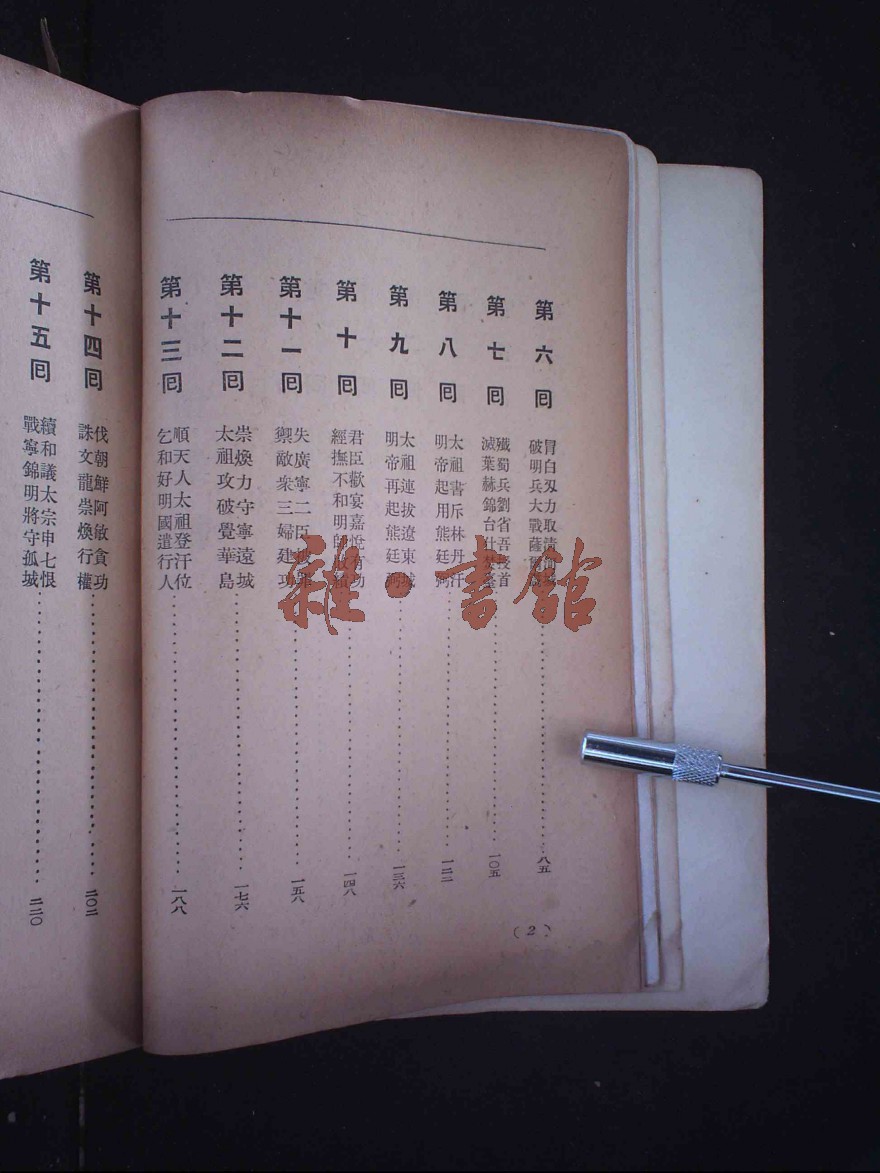 第六回
冒白刃力取清河城
破明兵大戰薩爾
八五
第七回
殲蜀兵劉省吾授首
滅葉赫錦台什焚臺
一〇五
第八回
太祖書斥林丹汗
明帝起用熊廷弼
一二二
第九回
太祖連拔遼東城
明帝再起熊廷弼
一三六
第十回
君臣歡宴嘉悅有功
經撫不和明
一四八
第十一回
失廣寧二臣
禦敵衆三婦建功
一五八
第十二回
崇煥力守寧遠城
太祖攻破覺華島
一七六
第十三回
順天人太祖登汗位
乞和好明國遣行人
一八八
(2)
第十四回
伐朝鮮阿敏貪功
誅文龍崇煥行權
二〇二
第十五回
續和議太宗申七恨
戰寧錦明將守孤城
二二〇
雜·書館